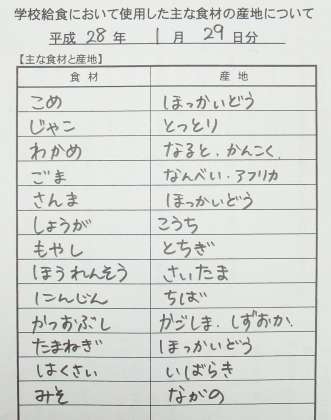 学校給食において使用した主な食材の産地について
平成 28 年 1 月 29 日分
【主な食材と産地】
食材 産地
こめ ほっかいどう
じゃこ とっとり
わかめ なると、かんこく、
ごま なんべい・アフリカ
さんま ほっかいどう
しょうが こうち
もやし とちぎ
ほうれんそう さいたま
にんじん ちば
かつおぶし かごしま、しずおか、
たまねぎ ほっかいどう
はくさい いばらき
みそ ながの